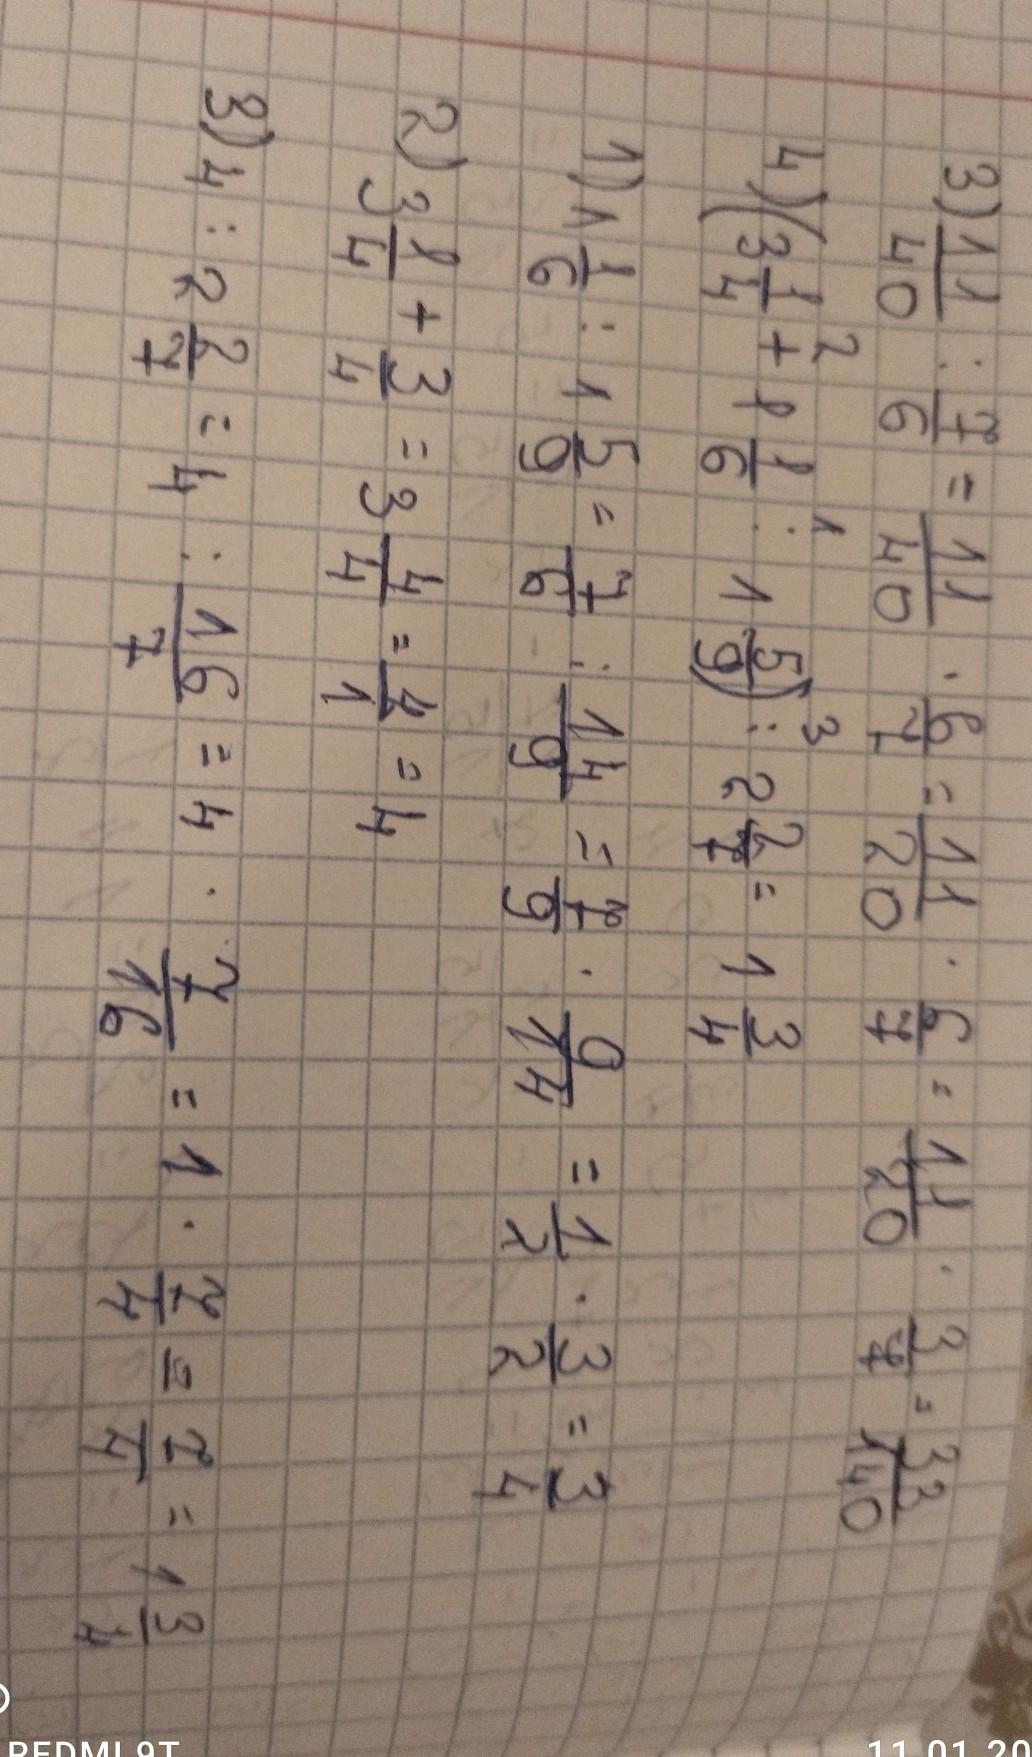 3) 11/40 : 7/6 = 11/40 · 6/7 = 11/20 · 6/7 = 11/20 · 3/7 = 33/140
4) (3 1/4 +² 1 1/6 :¹ 1 5/9) :³ 2 2/7 = 1 3/4
1) 1 1/6 : 1 5/9 = 7/6 : 14/9 = 7/9 · 9/14 = 1/2 · 3/2 = 3/4
2) 3 1/4 + 3/4 = 3 4/4 = 4/1 = 4
3) 4 : 2 2/7 = 4 : 16/7 = 4 · 7/16 = 1 · 7/4 = 7/4 = 1 3/4
REDMI 9T
11.01.20